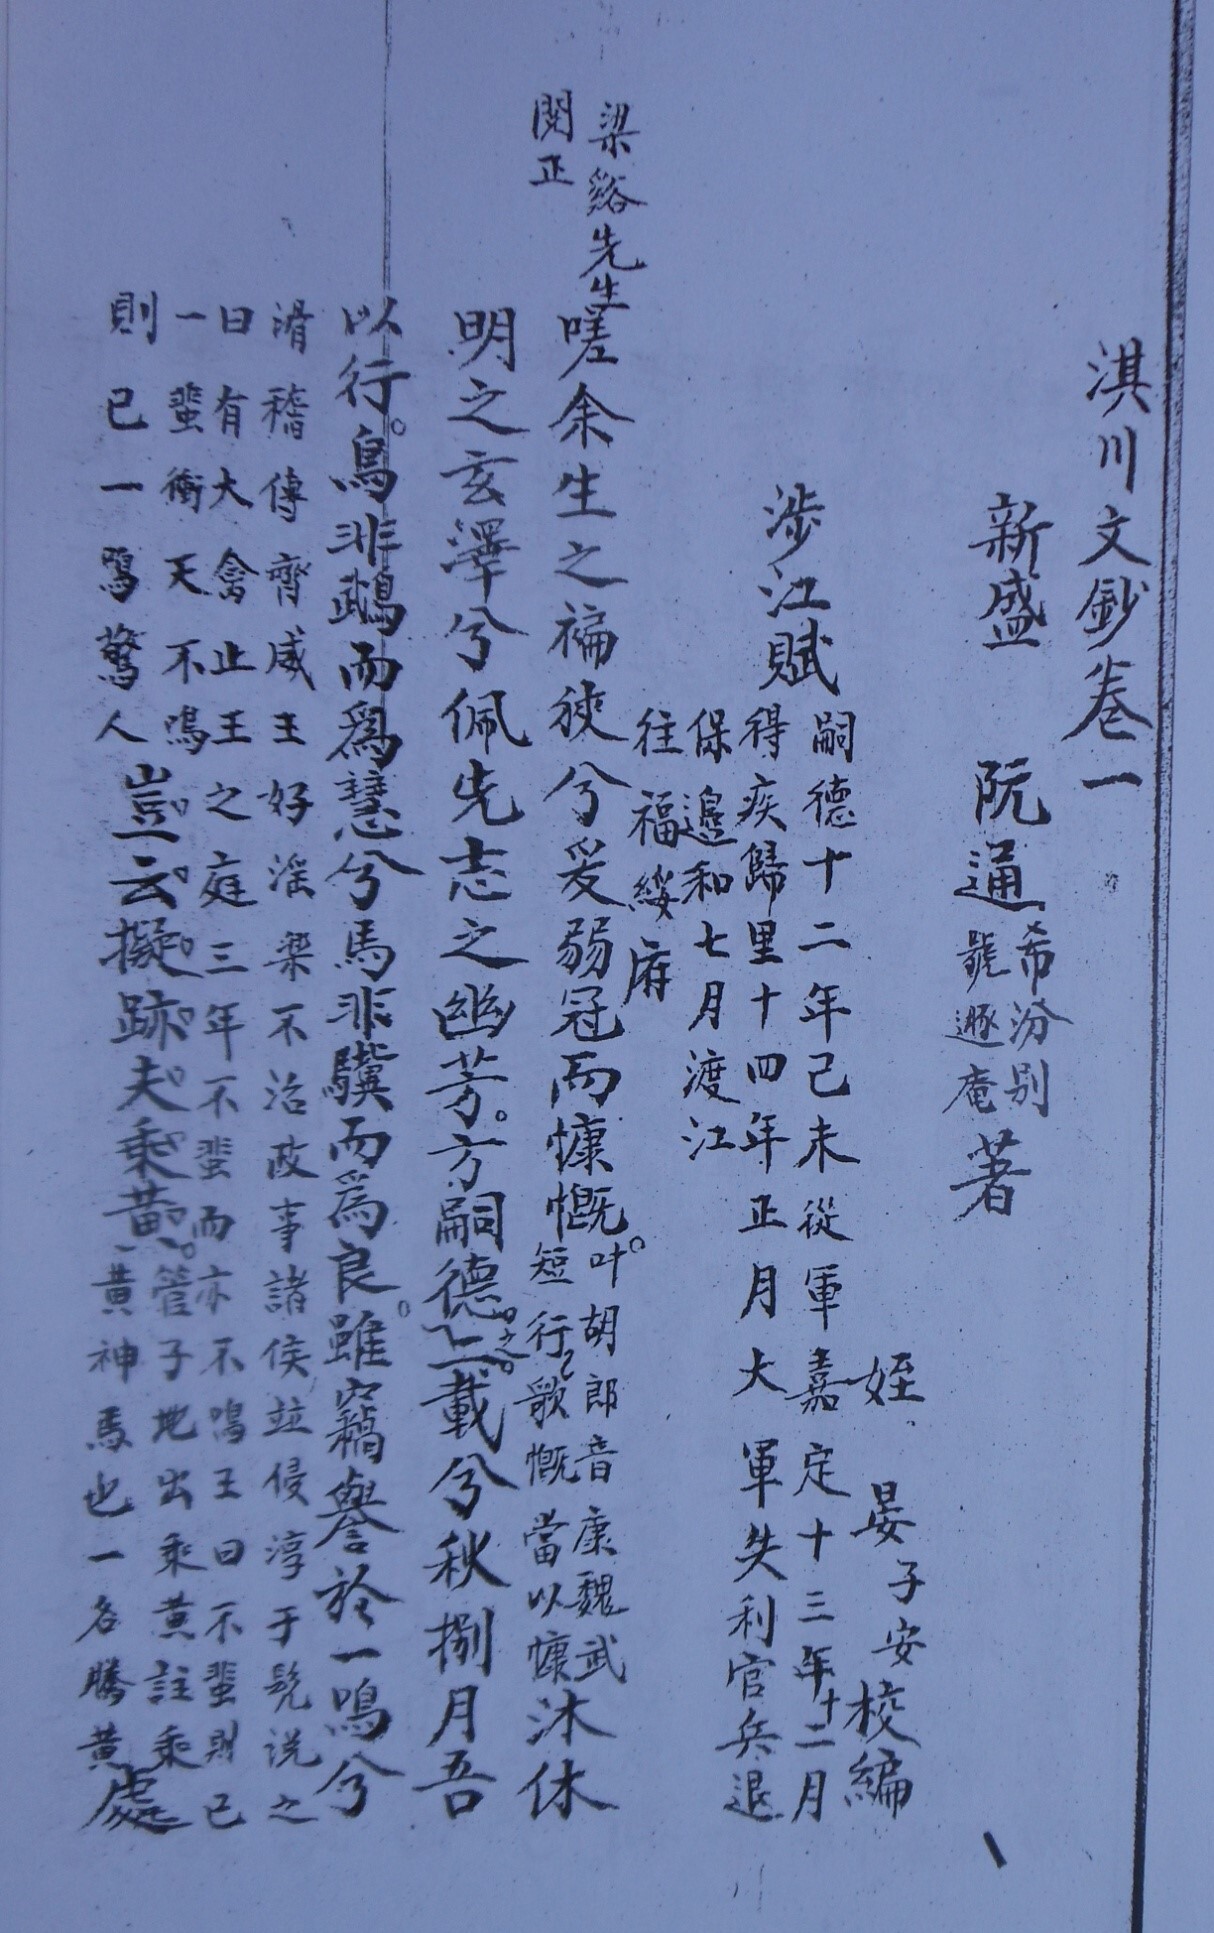 淇川文鈔卷一
新盛 阮通 希汾別號遯庵 著
姪 晏子安 校編
涉江賦 嗣德十二年己未從軍嘉定十三年十二月
得疾歸里十四年正月大軍失利官兵退
保邊和七月渡江
往福綏府
梁谿先生
閱正
嗟余生之褊狹兮爰弱冠而慷慨 叶胡郎音康魏武
短行歌慨當以慷 沐休
明之玄澤兮佩先志之幽芳方嗣德之十二載兮秋捌月吾
以行鳥非鵡而爲慧兮馬非驥而爲良雖竊譽於一鳴兮
滑稽傳齊威王好淫樂不治政事諸侯竝侵淳于髡説之
曰有大禽止王之庭三年不蜚而亦不鳴王曰不蜚則已
一蜚衝天不鳴
則已一鳴驚人 豈云擬跡夫乘黄 管子地出乘黄註乘
黄神馬也一名騰黄 處